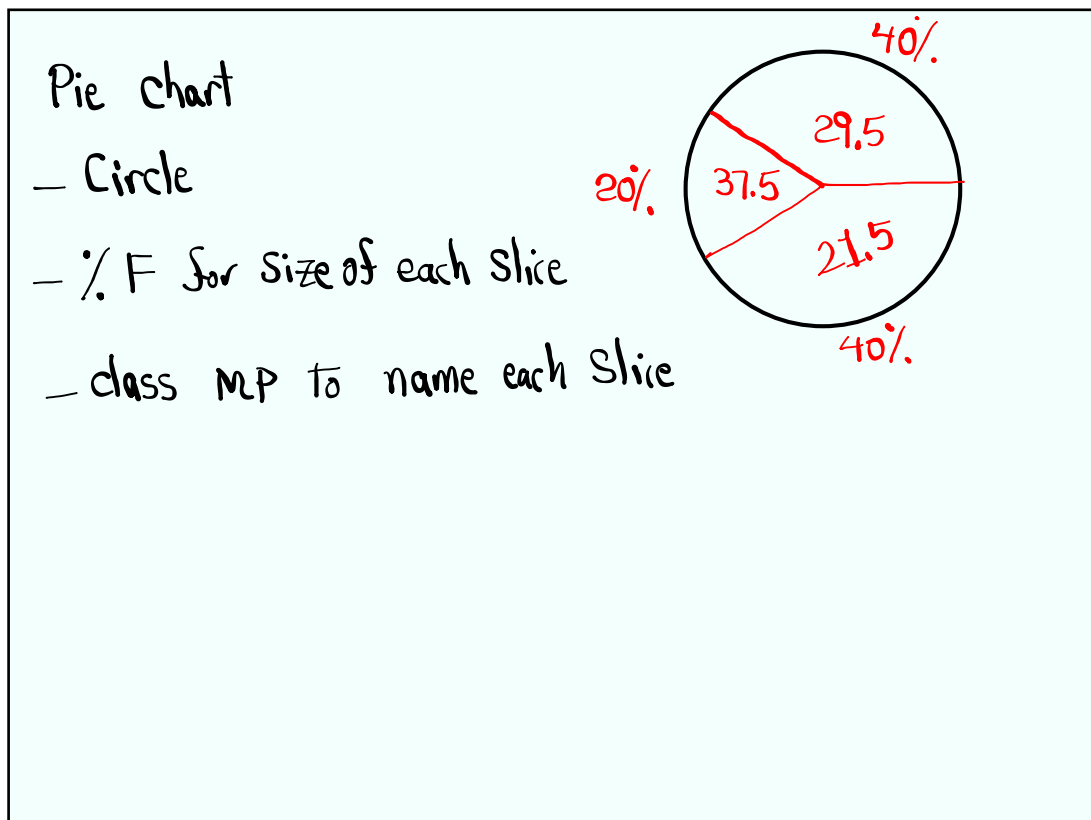 Pie chart
– Circle
– % F for size of each slice
– class MP to name each slice
40%
29.5
20%
37.5
21.5
40%